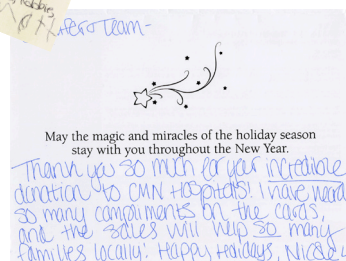 Team-
May the magic and miracles of the holiday season
stay with you throughout the New Year.
Thank you so much for your incredible
donation to CMN Hospitals! I have heard
so many compliments on the cards,
and the sales will help so many
families locally! Happy Holidays, Nicole